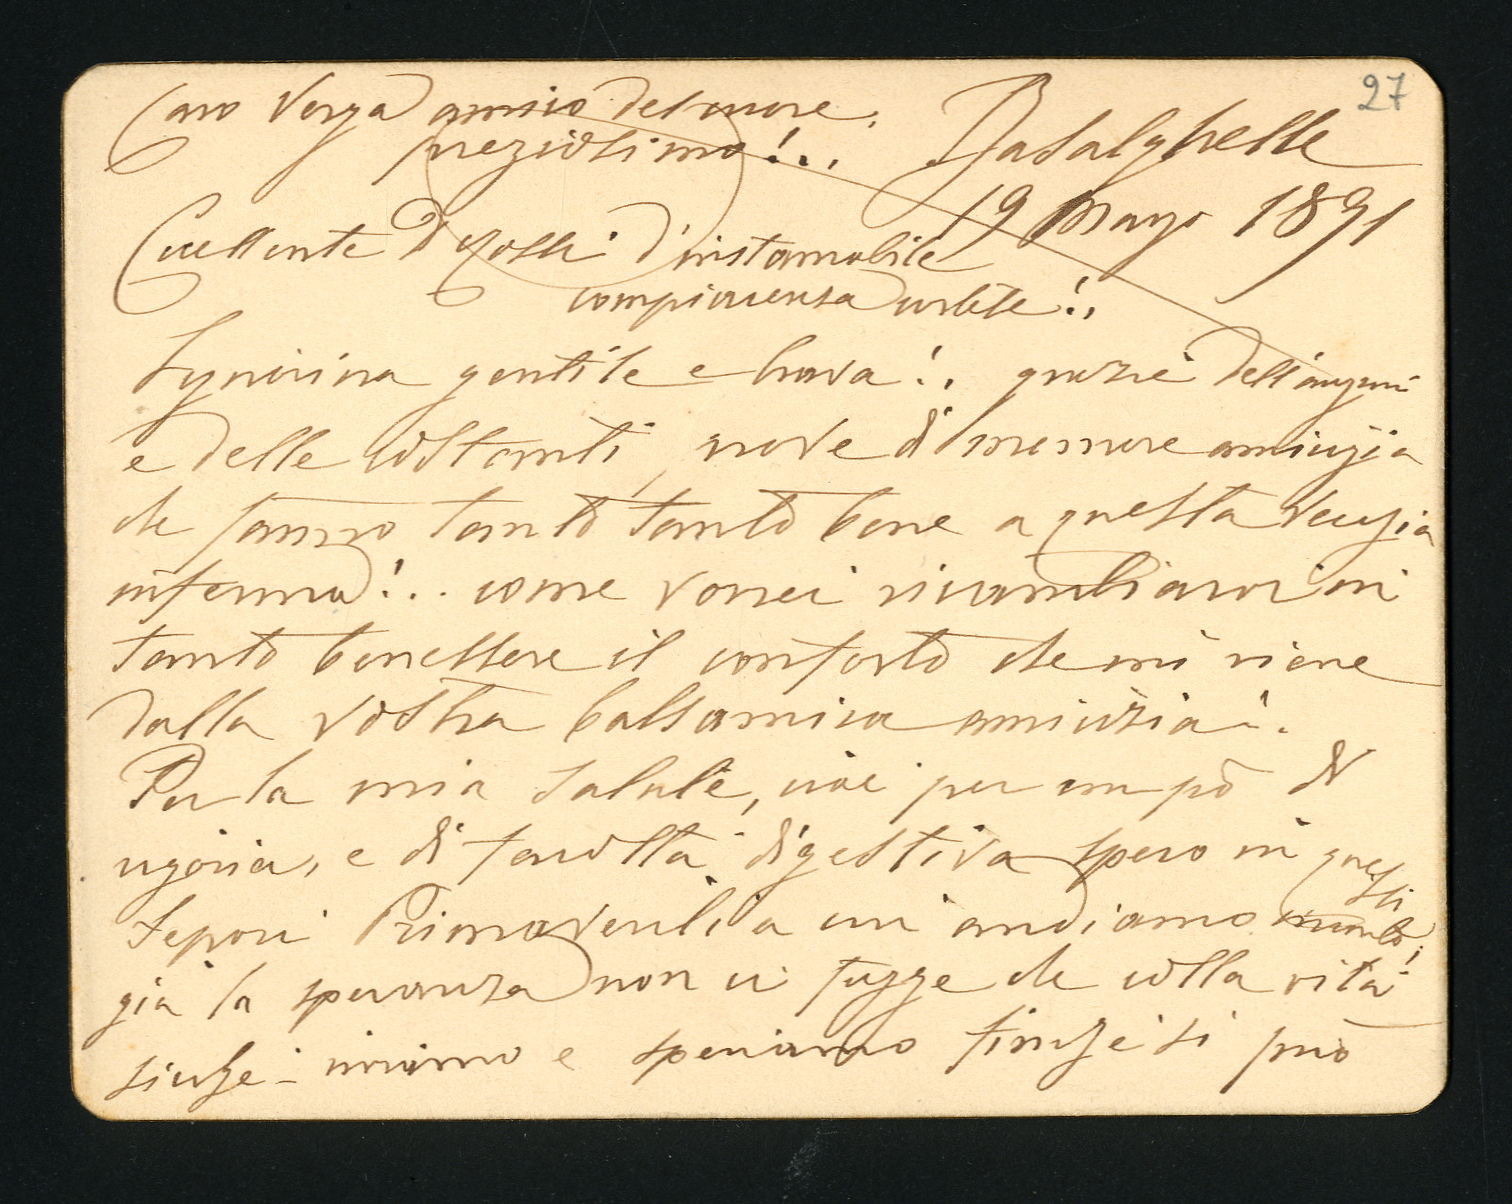 27
Caro Verga amico del cuore,
preziosissimo!..
Basalghelle
19 Mayo 1891
Eccellente De Rossi d'instancabile
compiacenza cortese!.
Signorina gentile e brava!. grazie dell'auguri
e delle costanti prove di memore amicizia
che fanno tanto tanto bene a questa vecchia
inferma!.. come vorrei ricambiarvi in
tanto benessere il conforto che mi viene
dalla vostra balsamica amicizia!.
Per la mia salute, cioè per un pò di
vigoria, e di facoltà digestiva spero in questi
tepori Primaverili a cui andiamo incontro;
già la speranza non ci fugge che colla vita
sicché viviamo e speriamo finché si può